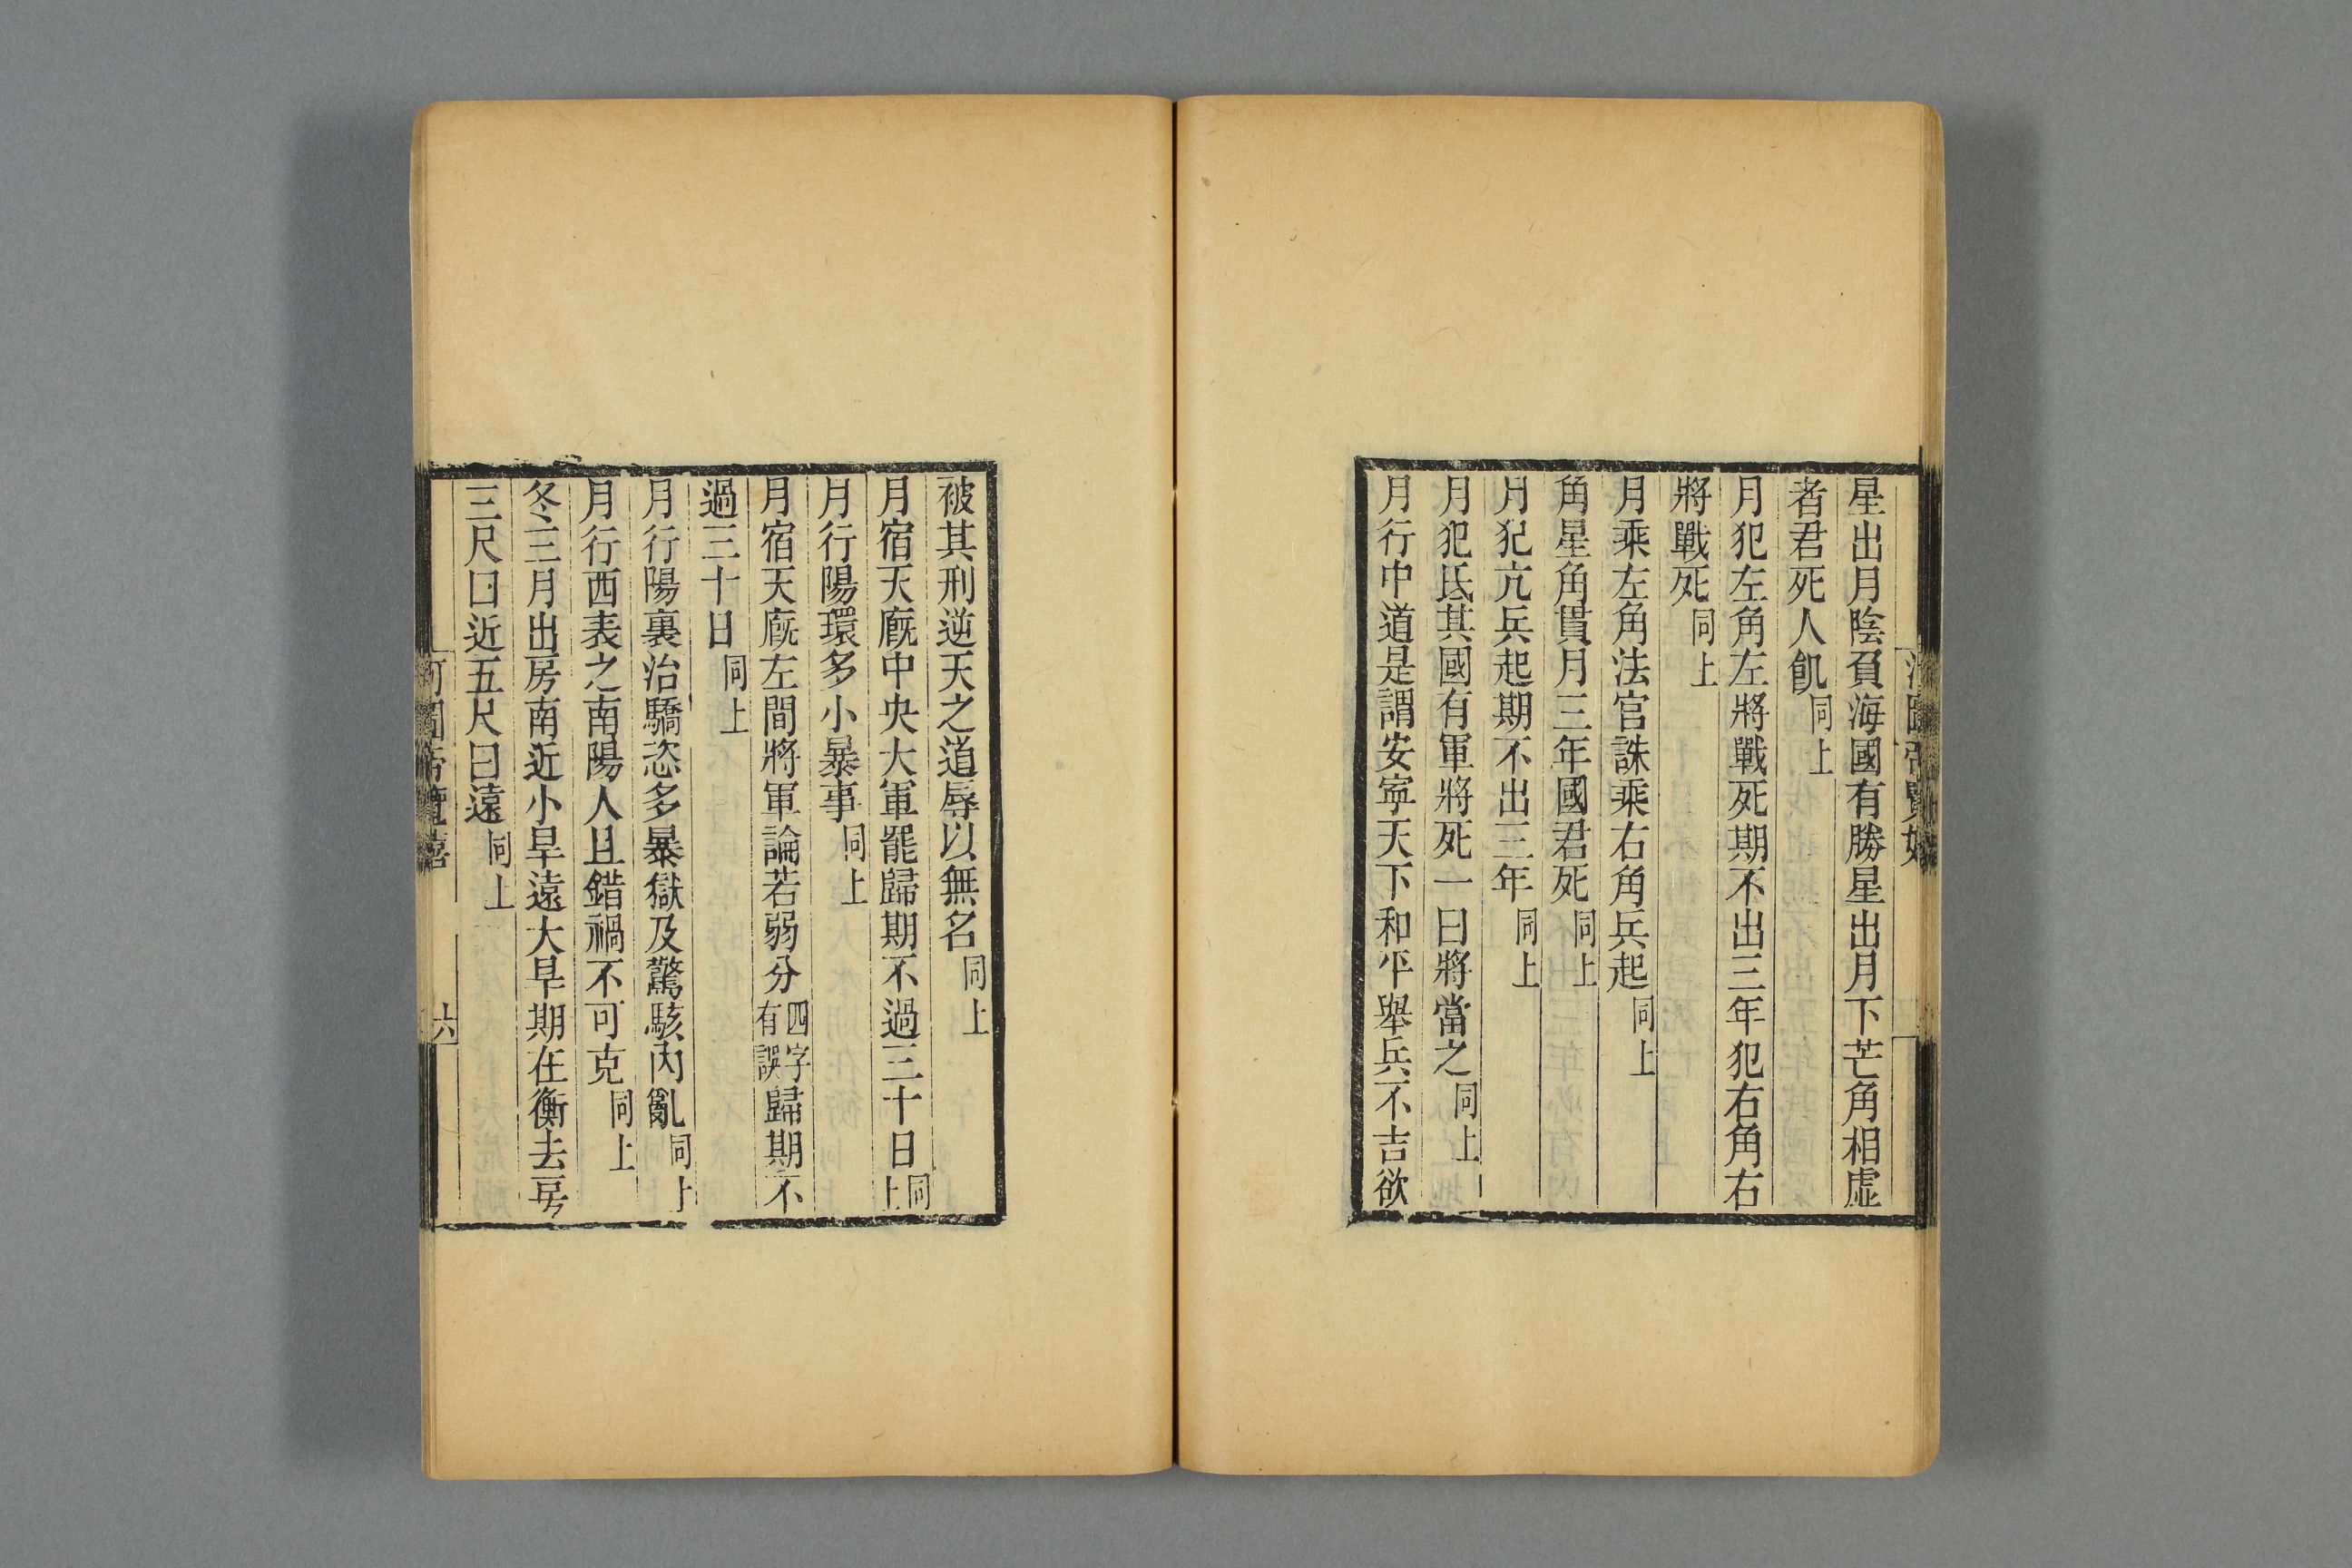 星出月陰負海國有勝星出月下芒角相虛
者君死人飢同上
月犯左角左將戰死期不出三年犯右角右
將戰死同上
月乘左角法官誅乘右角兵起同上
角星角貫月三年國君死同上
月犯亢兵起期不出三年同上
月犯氐其國有軍將死一曰將當之同上
月行中道是謂安寧天下和平舉兵不吉欲
被其刑逆天之道辱以無名同上
月宿天廐中央大軍罷歸期不過三十日同上
月行陽環多小暴事同上
月宿天廐左間將軍論若弱分四字有誤歸期不
過三十日同上
月行陽裏治驕恣多暴獄及驚駭內亂同上
月行西表之南陽人且錯禍不可克同上
冬三月出房南近小旱遠大旱期在衡去房
三尺曰近五尺曰遠同上
河圖帝覽嬉
六